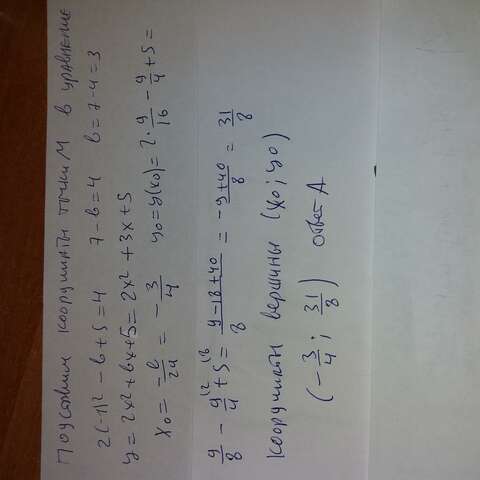 Подставим координаты точки М в уравнение
2(-1)² - b + 5 = 4 7 - b = 4 b = 7 - 4 = 3
y = 2x² + bx + 5 = 2x² + 3x + 5
x₀ = -b/2a = -3/4 y₀ = y(x₀) = 2·9/16 - 9/4 + 5 =
9/8 - 9/4 + 5 = (9 - 18 + 40)/8 = (-9 + 40)/8 = 31/8
координаты вершины (x₀; y₀)
(-3/4; 31/8) ответ А